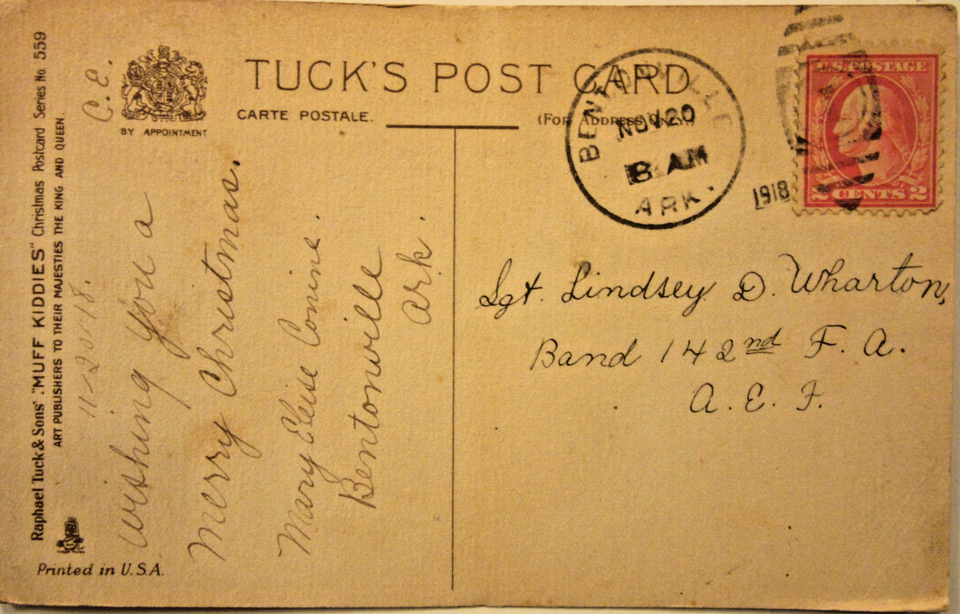 Raphael Tuck & Sons' "MUFF KIDDIES" Christmas Postcard Series No. 559
ART PUBLISHERS TO THEIR MAJESTIES THE KING AND QUEEN.
Printed in U.S.A.
C.E.
BY APPOINTMENT
TUCK'S POST CARD
CARTE POSTALE.
(For Address Only.)
11-20-18.
Wishing you a
Merry Christmas.
Mary Elise Comine.
Bentonville
Ark.
BENTONVILLE
NOV 20
8 AM
1918
ARK.
U.S. POSTAGE
2 CENTS 2
Sgt. Lindsey D. Wharton,
Band 142nd F. A.
A. E. F.